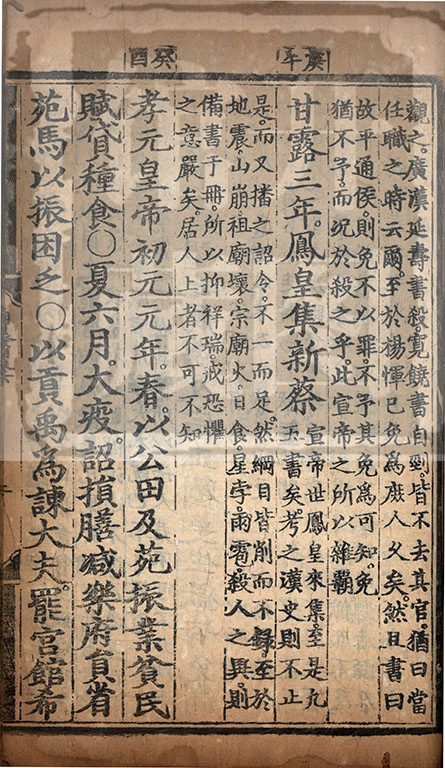 庚午
觀之。廣漢延壽書殺。寬饒書自剄。皆不去其官。猶曰當
任職之時云爾。至於楊惲已免為庶人乆矣。然且書曰
故平通侯。則免不以罪。不予其免為可知。免
猶不予。而況於殺之乎。此宣帝之所以雜霸
甘露三年。鳳皇集新蔡
宣帝世鳳皇來集。至是九
五書矣。考之漢史則不止
是。而又播之詔令。不一而足。然綱目皆削而不錄。至於
地震。山崩。祖廟壞。宗廟火。日食。星孛。雨雹。殺人之異。則
備書于冊。所以抑祥瑞戒恐懼
之意嚴矣。居人上者不可不知
癸酉
孝元皇帝初元元年。春。以公田及苑振業貧民
賦貸種食〇夏六月。大疫。詔損膳。減樂府員。省
苑馬以振困乏〇以貢禹為諫大夫。罷宮館希